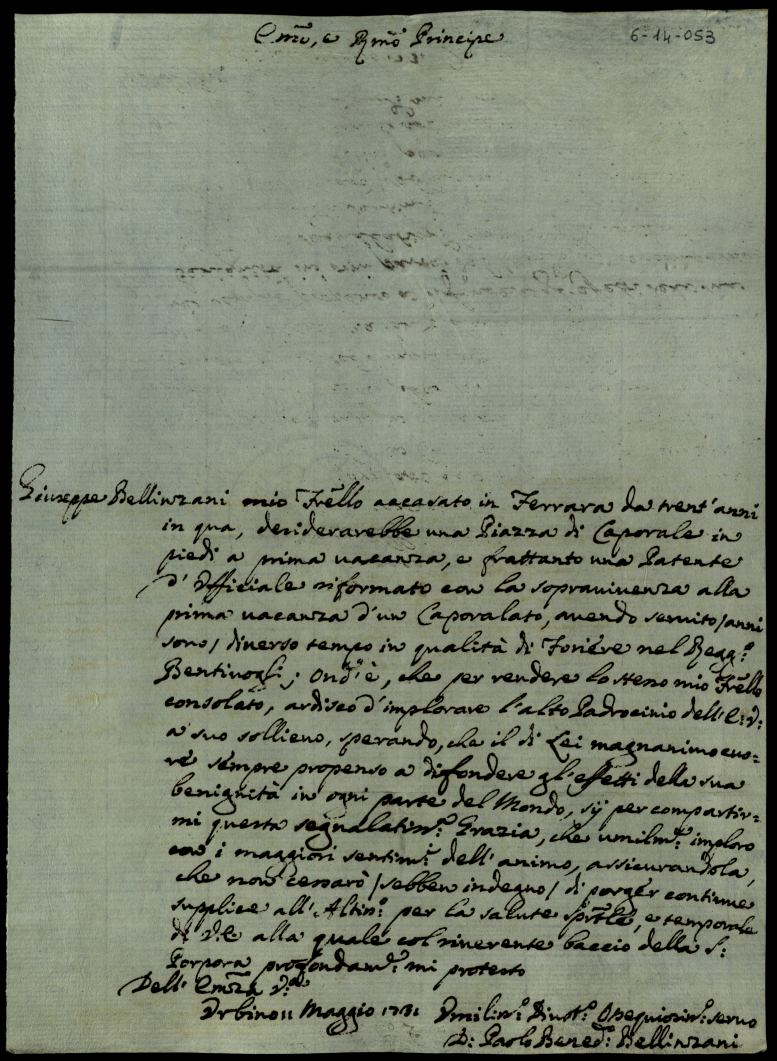 Em̃o, e Rm̃o Principe
6-14-053
Giuseppe Bellinzani mio Frẽllo accasato in Ferrara da trent'anni
in qua, desiderarebbe una Piazza di Caporale in
piedi a prima vacanza, e frattanto una Patente
d'Officiale riformato con la sopravivenza alla
prima vacanza d'un Caporalato, avendo servito /anni
sono/ diverso tempo in qualità di Foriére nel Regg:º
Bentivogli; Ond'è, che per rendere lo stesso mio Frẽllo
consolato, ardisco d'implorare l'alto Padrocinio dell'E: V:
a suo sollievo, sperando, che il di Lei magnanimo cuo=
re sempre propenso a difondere gl'effetti della sua
benignità in ogni parte del Mondo, sij per compartir=
mi questa segnalatiss:ª Grazia, che umilm:e imploro
con i maggiori sentim:ti dell'animo, assicurandola,
che non cessarò /sebben indegno/ di porger continue
supplice all'Altiss:º per la salute sp̃rtle, e temporale
di V: E alla quale col riverente baccio della S:
Porpora profondam:e mi protesto
Dell' Em̃za V:ª
Urbino 11 Maggio 1731 Umiliss:º Divot:º Ossequiosiss:º servo
D: Paolo Bened:º Bellinzani